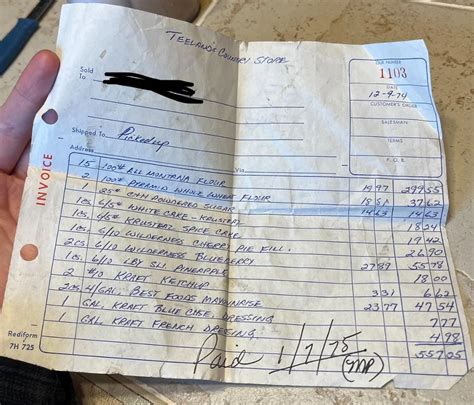 TEELAND'S COUNTRY STORE
OUR NUMBER
1103
Sold To
DATE
12-9-74
CUSTOMER'S ORDER
SALESMAN
TERMS
F.O.B.
Shipped To Picked up
Address Via
INVOICE
15 100# ALL MONTANA FLOUR 19.97 299.55
2 100# PYRAMID WHOLE WHEAT FLOUR 18.81 37.62
1 25# C&H POWDERED SUGAR 14.63 14.63
1cs. 6/5# WHITE CAKE - KRUSTEAZ 18.24
1cs. 6/5# KRUSTEAZ SPICE CAKE 19.42
1cs. 6/10 WILDERNESS CHERRY PIE FILL. 26.90
2cs. 6/10 WILDERNESS BLUEBERRY 27.89 55.78
1cs. 6/10 LBY SLI PINEAPPLE 18.00
2 #10 KRAFT KETCHUP 3.31 6.62
2cs. 4/GAL. BEST FOODS MAYONNAISE 23.77 47.54
1 GAL. KRAFT BLUE DRESSING 7.77
1 GAL. KRAFT FRENCH DRESSING 4.98
557.05
Paid 1/7/75 (MP)
Rediform
7H 725